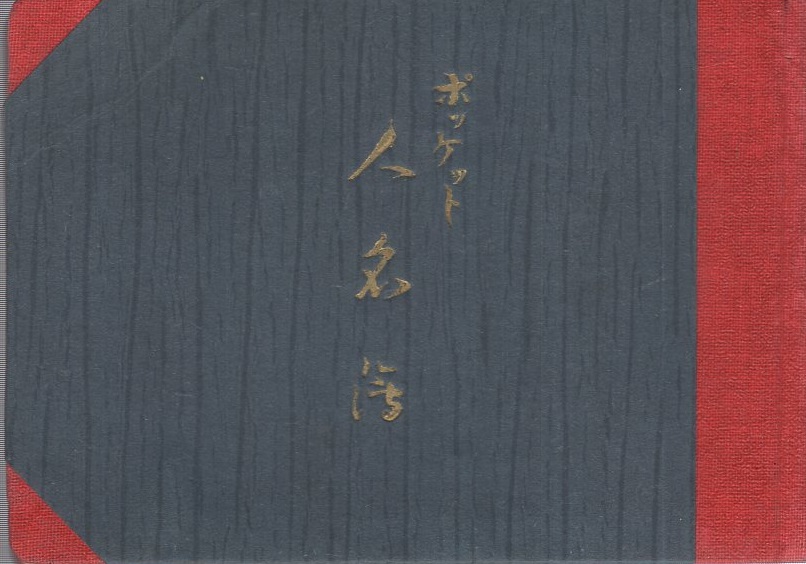 ポケット
人名簿